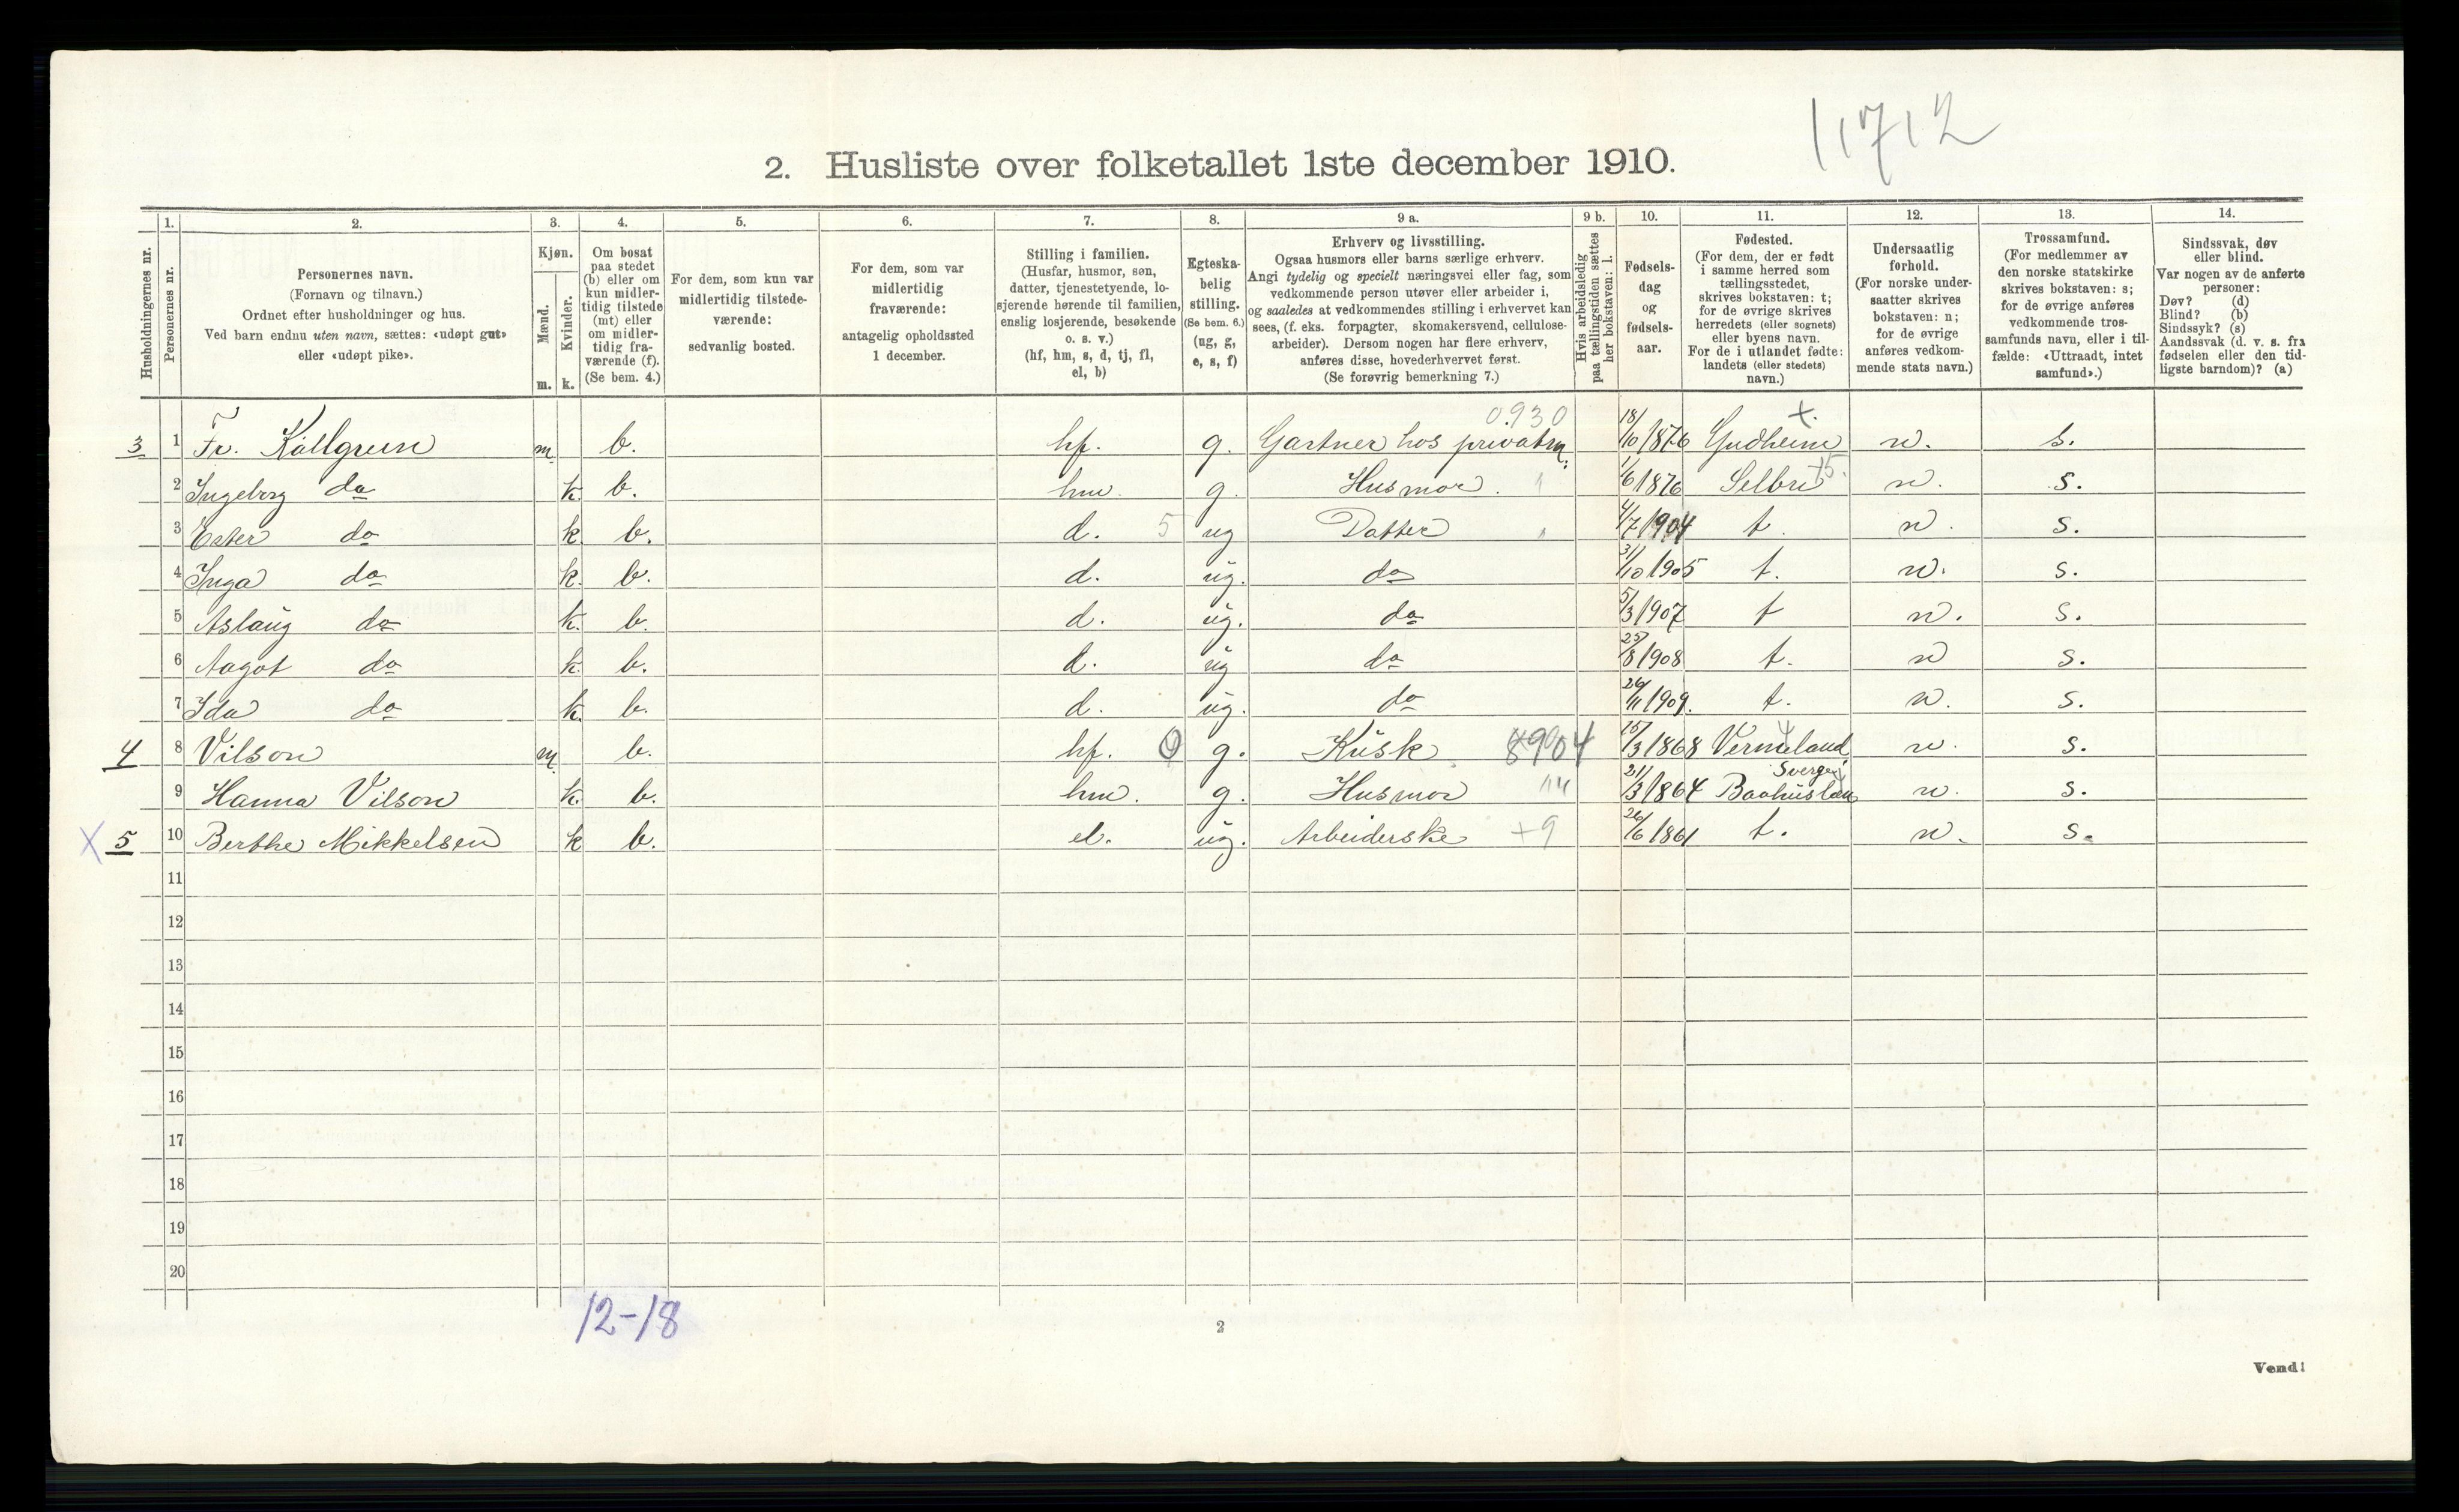 11712
2. Husliste over folketallet 1ste december 1910.
Husholdningernes nr.
1. Personernes nr.
2. Personernes navn.
(Fornavn og tilnavn.)
Ordnet efter husholdninger og hus.
Ved barn endnu uten navn, sættes: «udøpt gut»
eller «udøpt pike».
3. Kjøn.
Mænd. m.
Kvinder. k.
4. Om bosat
paa stedet
(b) eller om
kun midler-
tidig tilstede
(mt) eller
om midler-
tidig fra-
værende (f).
(Se bem. 4.)
5. For dem, som kun var
midlertidig tilstede-
værende:
sedvanlig bosted.
6. For dem, som var
midlertidig
fraværende:
antagelig opholdssted
1 december.
7. Stilling i familien.
(Husfar, husmor, søn,
datter, tjenestetyende, lo-
sjerende hørende til familien,
enslig losjerende, besøkende
o. s. v.)
(hf, hm, s, d, tj, fl,
el, b)
8. Egteska-
belig
stilling.
(Se bem. 6.)
(ug, g,
e, s, f)
9 a. Erhverv og livsstilling.
Ogsaa husmors eller barns særlige erhverv.
Angi tydelig og specielt næringsvei eller fag, som
vedkommende person utøver eller arbeider i,
og saaledes at vedkommendes stilling i erhvervet kan
sees, (f. eks. forpagter, skomakersvend, cellulose-
arbeider). Dersom nogen har flere erhverv,
anføres disse, hovederhvervet først.
(Se forøvrig bemerkning 7.)
9 b. Hvis arbeidsledig
paa tællingstiden sættes
her bokstaven: l.
10. Fødsels-
dag
og
fødsels-
aar.
11. Fødested.
(For dem, der er født
i samme herred som
tællingsstedet,
skrives bokstaven: t;
for de øvrige skrives
herredets (eller sognets)
eller byens navn.
For de i utlandet fødte:
landets (eller stedets)
navn.)
12. Undersaatlig
forhold.
(For norske under-
saatter skrives
bokstaven: n;
for de øvrige
anføres vedkom-
mende stats navn.)
13. Trossamfund.
(For medlemmer av
den norske statskirke
skrives bokstaven: s;
for de øvrige anføres
vedkommende tros-
samfunds navn, eller i til-
fælde: «Uttraadt, intet
samfund».)
14. Sindssvak, døv
eller blind.
Var nogen av de anførte
personer:
Døv? (d)
Blind? (b)
Sindssyk? (s)
Aandssvak (d. v. s. fra
fødselen eller den tid-
ligste barndom)? (a)
0.930 +.
3 1 Fr. Källgreen m b. hf. g. Gartner hos privatm. 18/10 1876 Gudheim n. s.
2 Ingeborg do k. b. hm. g. Husmor. 1/6 1876 Selbu +5. n. s.
3 Ester do k. b. d. 5 ug Datter 4/7 1904 t n. s.
4 Inga do k. b. d. ug. do 31/10 1905 t. n. s.
5 Aslaug do k. b. d. ug. do 5/3 1907 t n. s.
6 Aagot do k. b. d. ug do 25/8 1908 t. n s.
7 Ida do k. b. d. ug. do 26/11 1909. t. n. s.
4 8 Vilson m b. hf. g. Kusk 8904 15/3 1868 Vermeland n. s.
Sverge
9 Hanna Vilson k. b. hm. g. Husmor 21/3 1864 Baahuslen n. s.
X 5 10 Berthe Mikkelsen k b. el. ug. Arbeiderske +9 26/6 1861 t. n. s.
11
12
13
14
15
16
17
18
19
20
12-18
2
Vend!